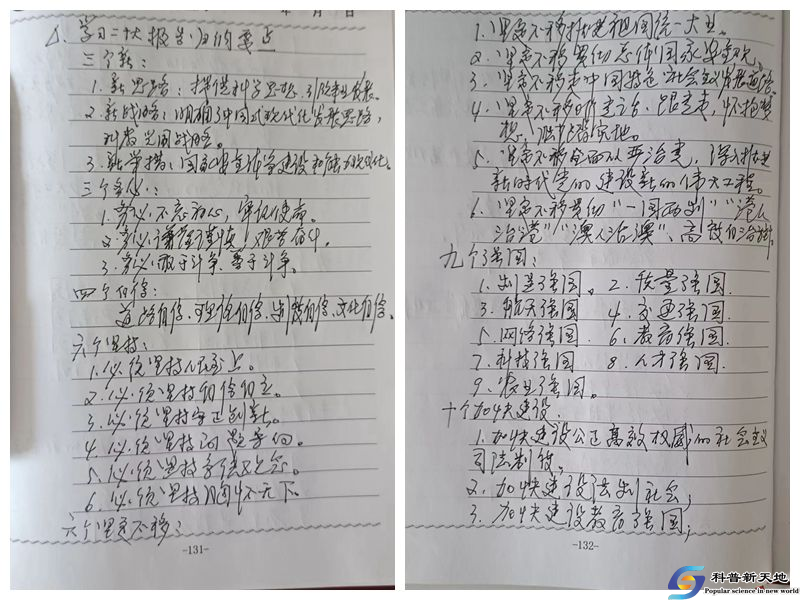 年 月 日
学习二十大报告归纳要点
三个新：
1. 新思路：提供科学思想，引
2. 新战略：明确了中国式现代化发展思路，
战略。
3. 新举措：国家安全体系建设和能力现代化。
三个务必：
1. 务必不忘初心，牢记使命。
2. 务必谦虚谨慎，艰苦奋斗。
3. 务必敢于斗争、善于斗争。
四个自信：
道路自信、理论自信、制度自信、文化自信。
六个坚持：
1. 必须坚持人民至上。
2. 必须坚持自信自立。
3. 必须坚持守正创新。
4. 必须坚持问题导向。
5. 必须坚持系统观念。
6. 必须坚持胸怀天下。
六个坚定不移：
-131-
1. 坚定不移推进祖国统一大业。
2. 坚定不移贯彻总体国家安全观。
3. 坚定不移走中国特色社会主义发展道路。
4. 坚定不移 怀抱梦
想，脚踏实地。
5. 坚定不移全面从严治党，深入推进
新时代党的建设新的伟大工程。
6. 坚定不移贯彻“一国两制”“港人
治港”“澳人治澳”、高度自治
九个强国：
1. 制造强国。 2. 质量强国.
3. 航天强国 4. 交通强国.
5. 网络强国. 6. 教育强国.
7. 科技强国 8. 人才强国.
9. 农业强国。
十个加快建设.
1. 加快建设公正高效权威的社会主义
司法制度。
2. 加快建设法治社会；
3. 加快建设教育强国；
-132-
科普新天地
Popular science in new world